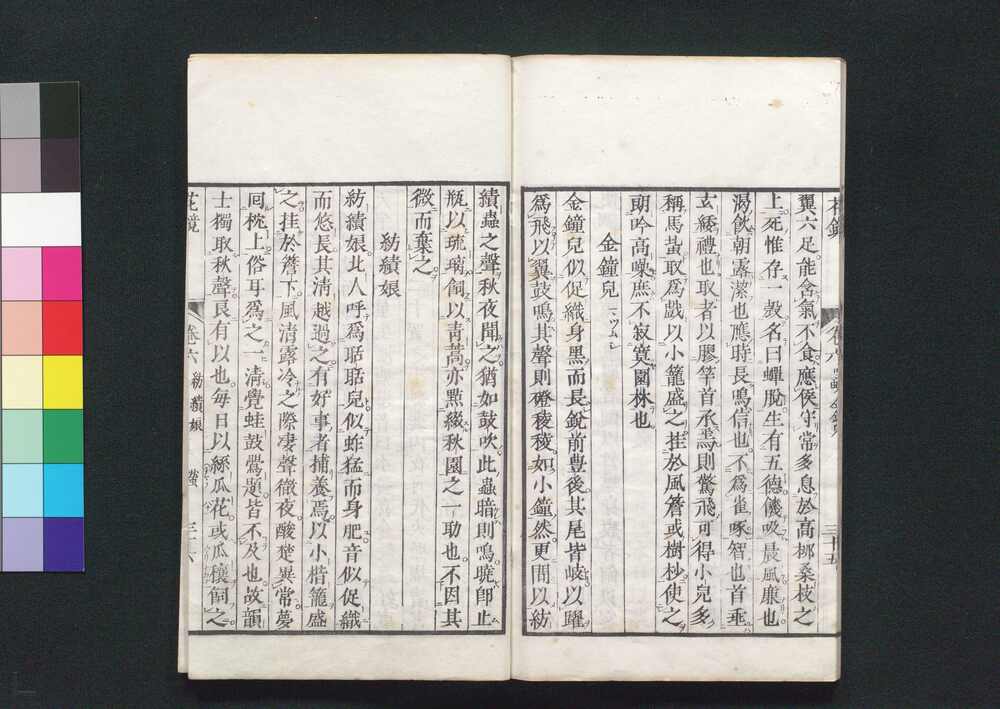 翼六足能含氣不食應候守常多息於高柳桑枝之
上死惟存一殼名曰蟬脫生有五德饑吸晨風廉也
渴飲朝露潔也應時長鳴信也不爲雀啄智也首垂
玄緌禮也取者以膠竿首承焉則驚飛可得小兒多
稱馬蚻取爲戲以小籠盛之挂於風簷或樹杪使之
朗吟高噪庶不寂寞園林也
金鐘兒
金鐘兒似促織身黑而長銳前豐後其尾皆岐以躍
爲飛以翼鼓鳴其聲則磴稜稜如小鐘然更間以紡
績蟲之聲秋夜聞之猶如鼓吹此蟲暗則鳴曉卽止
瓶以琉璃飼以靑蒿亦點綴秋園之一助也不因其
微而棄之
紡績娘
紡績娘北人呼爲聒聒兒似蚱蜢而身肥音似促織
而悠長其淸越過之有好事者捕養焉以小楷籠盛
之挂於簷下風淸露冷之際凄聲徹夜酸楚異常夢
囘枕上俗耳爲之一淸覺蛙鼓鶯題皆不及也故韻
士獨取秋聲良有以也每日以絲瓜花或瓜穰飼之
花鏡 卷六 紡績娘 螢 三十六